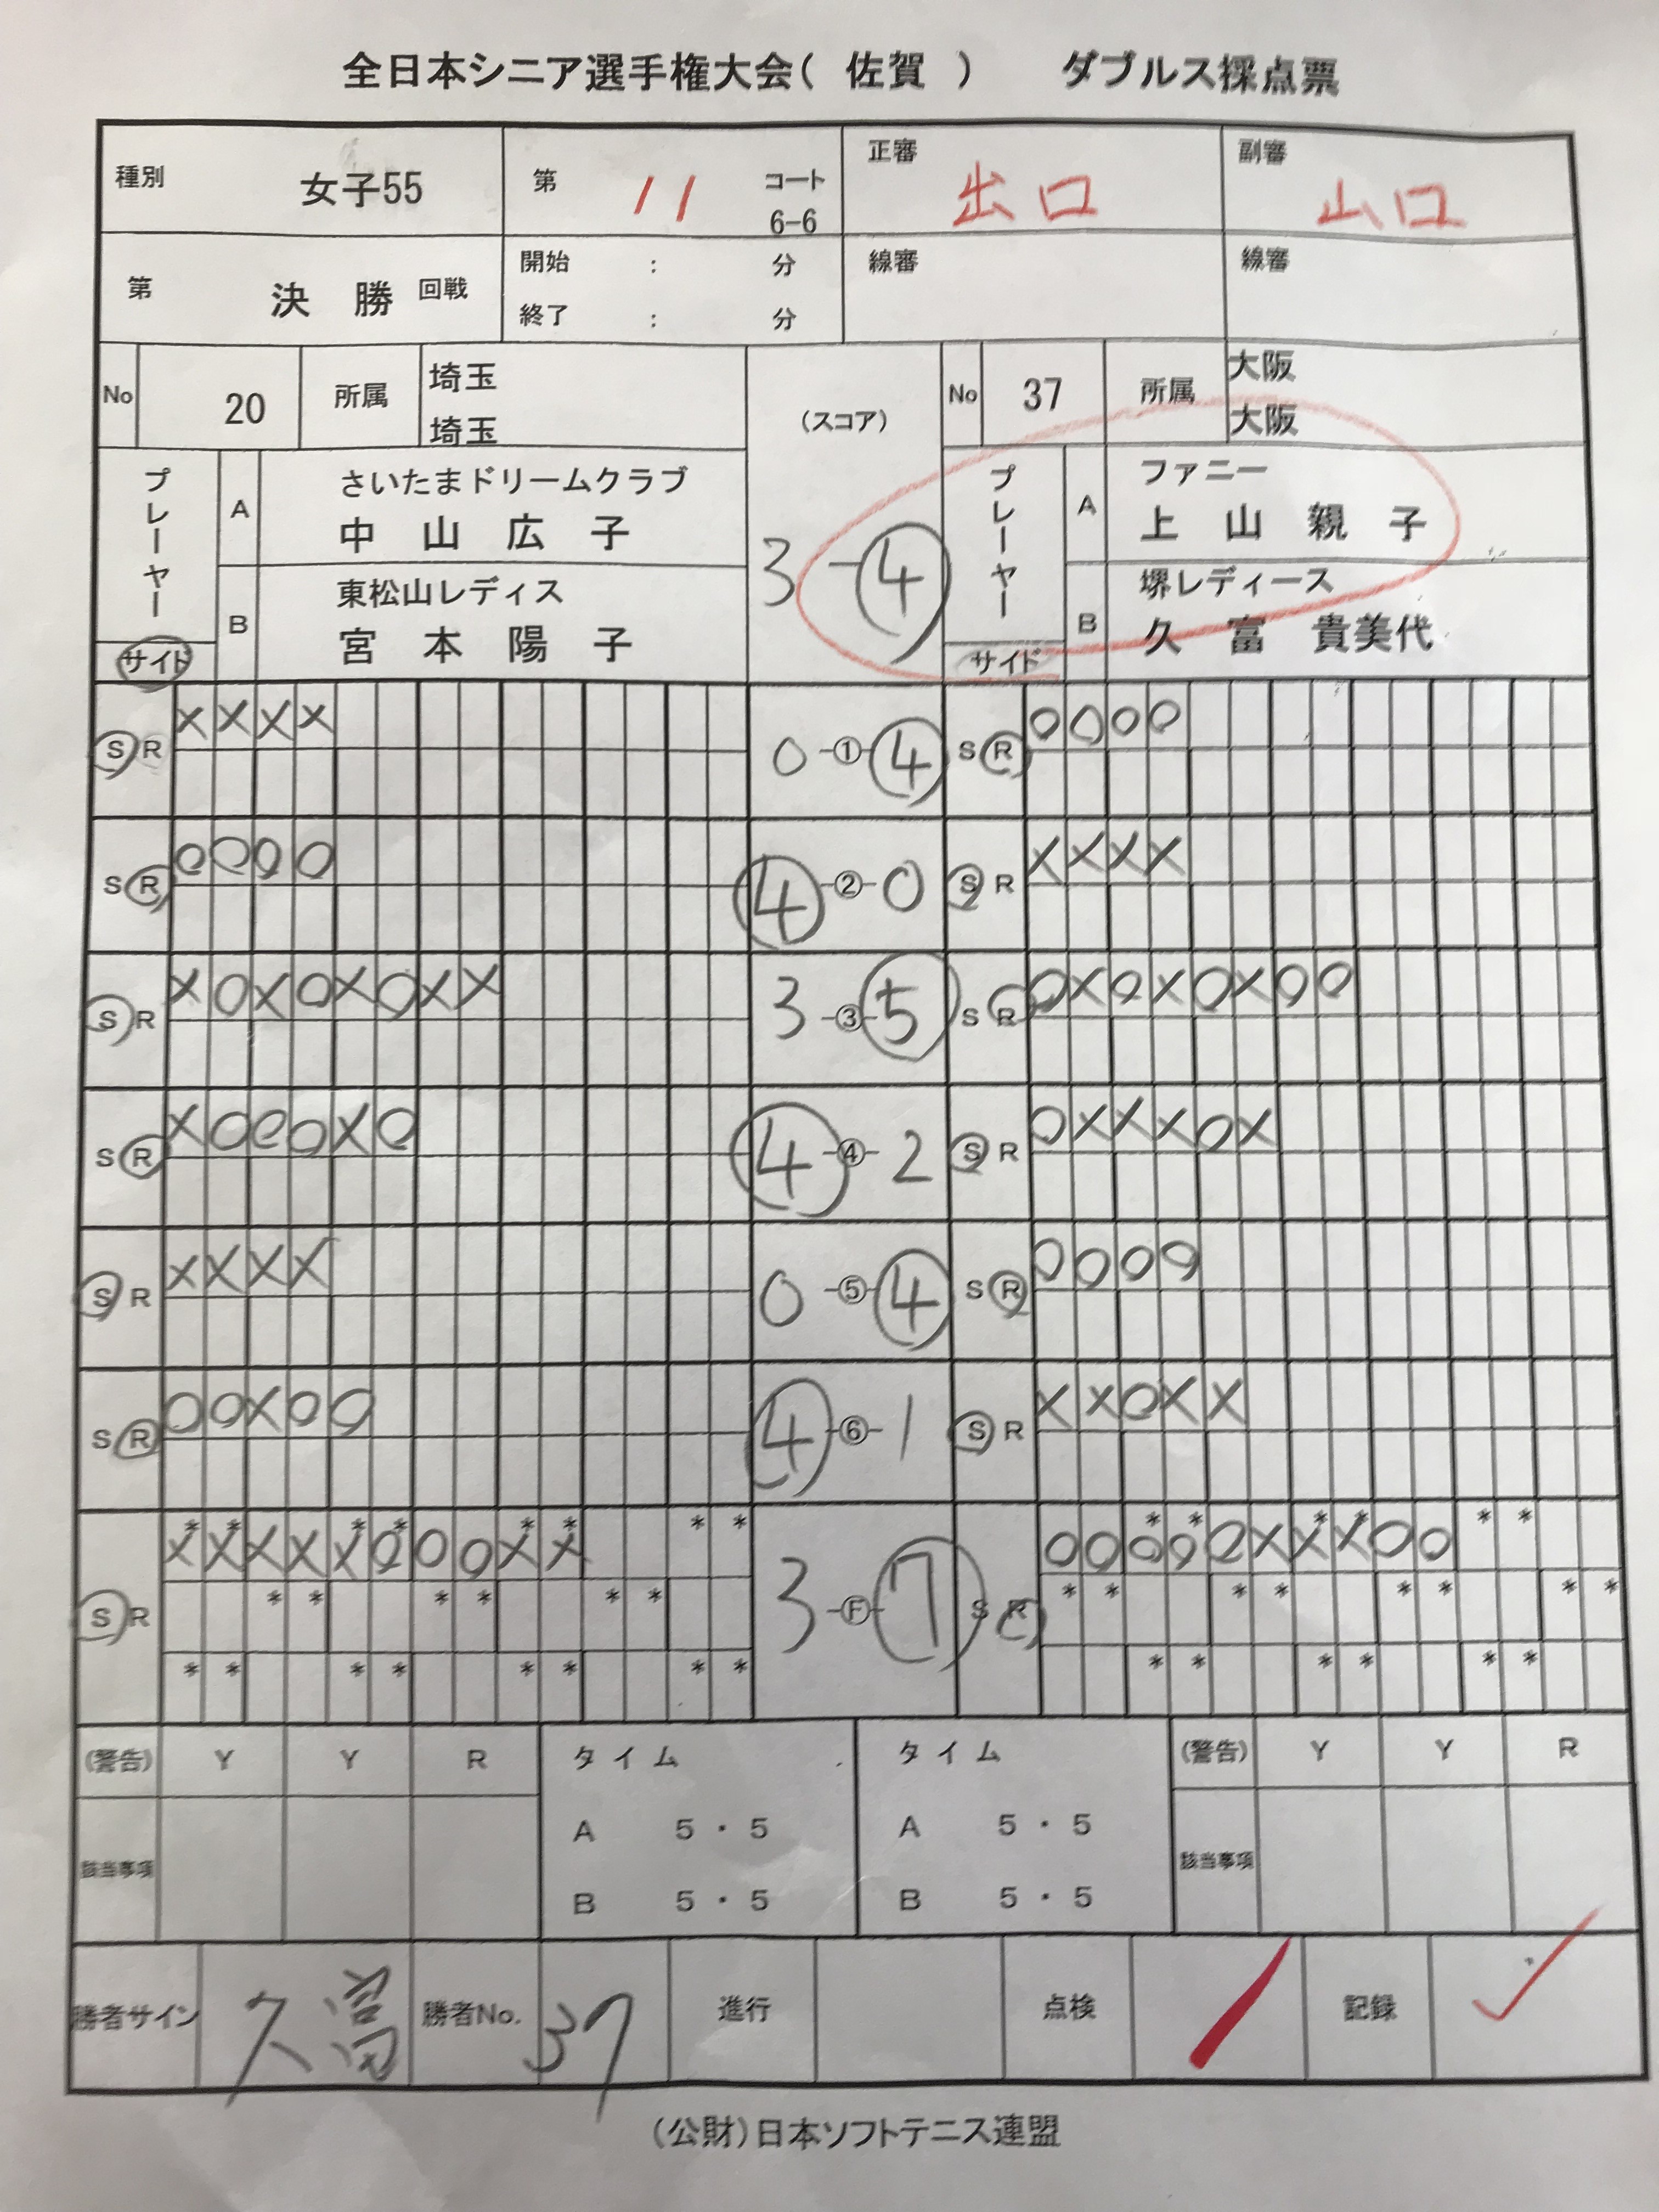 全日本シニア選手権大会( 佐賀 ) ダブルス採点票
種別 女子55 第 11 コート 6-6 正審 出口 副審 山口
第 決 勝 回戦 開始 : 分 線審 線審
終了 : 分
No 20 所属 埼玉 埼玉 (スコア) No 37 所属 大阪 大阪
プレーヤー A さいたまドリームクラブ プレーヤー A ファニー
中 山 広 子 3-④ 上 山 親 子
B 東松山レディス B 堺レディース
宮 本 陽 子 久 富 貴美代
サイド サイド
S R ×××× 0-①-④ S R ○○○○
S R ○○○○ ④-②-0 S R ××××
S R ×○×○×○×× 3-③-⑤ S R ○×○×○×○○
S R ×○○○×○ ④-④-2 S R ○×××○×
S R ×××× 0-⑤-④ S R ○○○○
S R ○○×○○ ④-⑥-1 S R ××○××
* * * * * * * * * * * * * *
S R ×××××○○○×× 3-Ⓕ-⑦ S R ○○○○○×××○○
* * * * * * * * * * * * * *
* * * * * * * * * * * * * *
(警告) Y Y R タイム タイム (警告) Y Y R
該当事項 A 5・5 A 5・5 該当事項
B 5・5 B 5・5
勝者サイン 久富 勝者No. 37 進行 点検 記録 ✓
(公財)日本ソフトテニス連盟